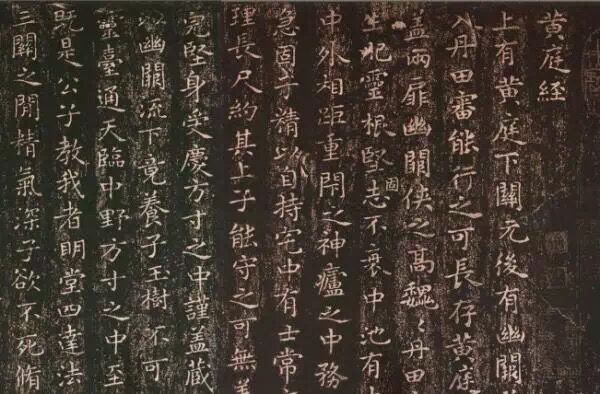 黄庭經
上有黄庭下關元後有幽關
入丹田審能行之可長存黄庭
盖兩扉幽關俠之髙巍〻丹田
生晛靈根堅志不衰中池有
固
中外相距重閇之神廬之中務
急固子精以自持宅中有士常
理長尺約其上子能守之可無
宛堅身受慶方寸之中謹盖藏
以幽關流下竟養子玉樹不可
靈臺通天臨中野方寸之中至
既是公子教我者眀堂四達法
三關之閒精氣深子欲不死脩